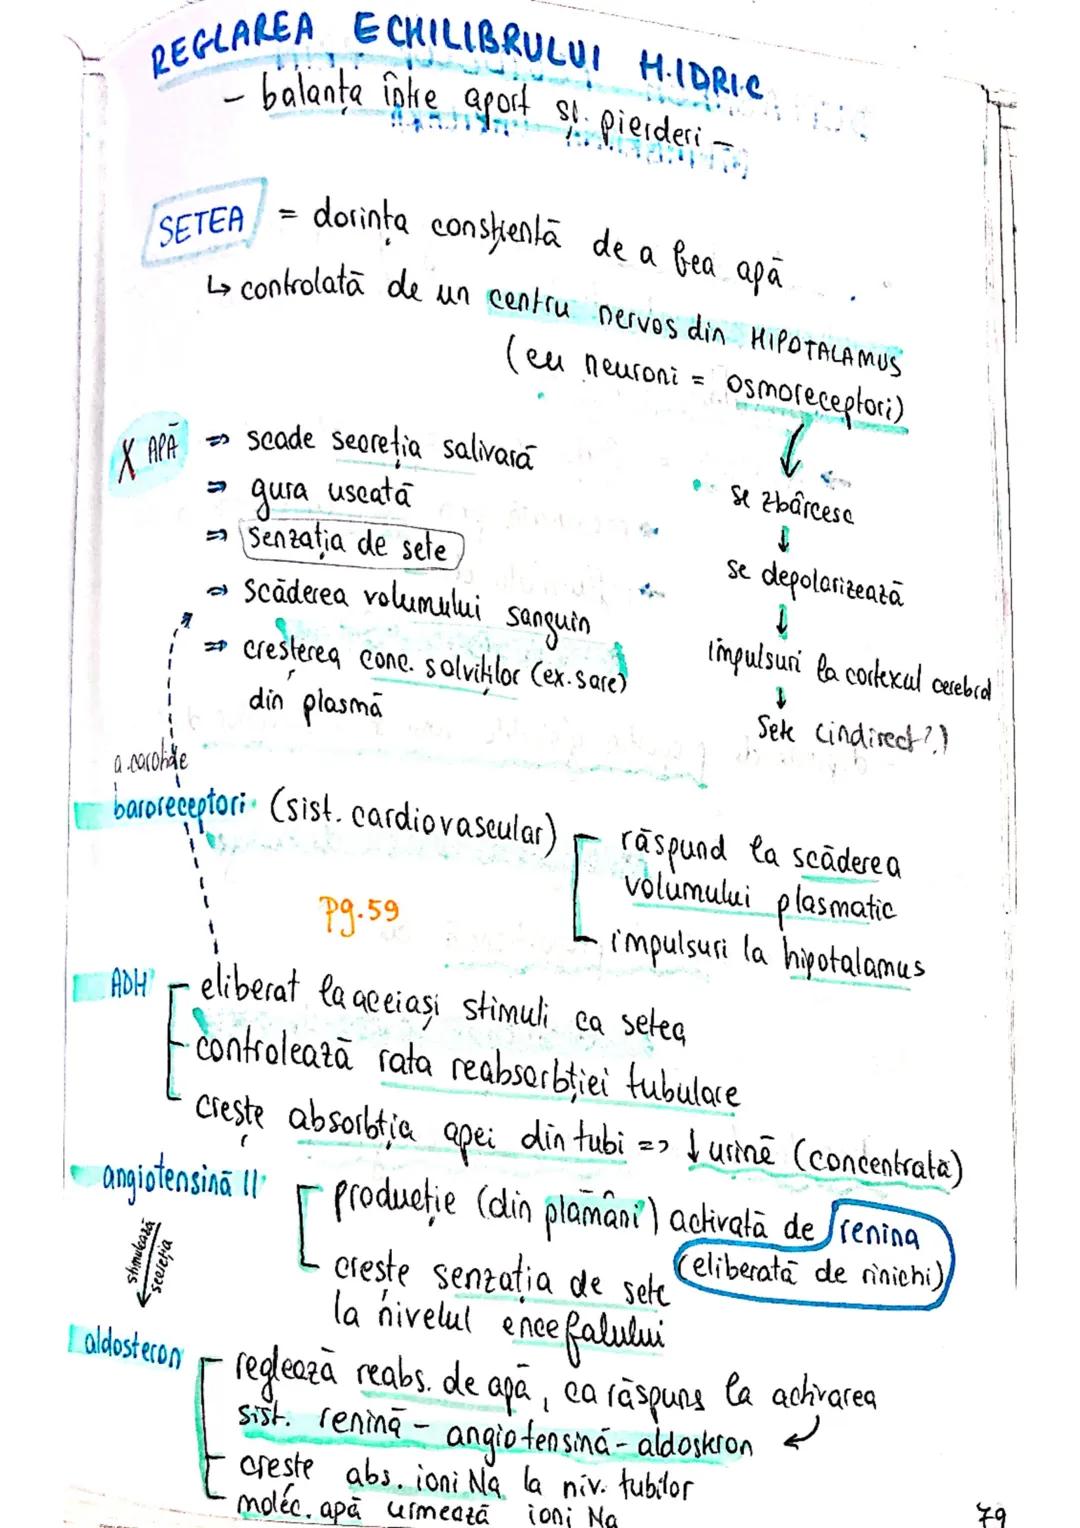 REGLAREA ECHILIBRULUI HIDRIC
- balanța între aport și pierderi -
SETEA = dorința conștientă de a bea apă
↳ controlată de un centru nervos din HIPOTALAMUS
(cu neuroni = osmoreceptori)
X APĂ ⇒ scade secreția salivară
⇒ gura uscată
⇒ senzația de sete
⇒ scăderea volumului sanguin
⇒ creșterea conc. solviților (ex. sare)
din plasmă
↓
se zbârcesc
↓
se depolarizează
↓
impulsuri la cortexul cerebral
↓
Sete (indirect?)
a. carotide
baroreceptori (sist. cardiovascular)
răspund la scăderea
volumului plasmatic
impulsuri la hipotalamus
pg. 59
ADH
eliberat la aceiași stimuli ca setea
controlează rata reabsorbției tubulare
crește absorbția apei din tubi => ↓ urină (concentrată)
angiotensină II
producție (din plămâni) activată de renina
(eliberată de rinichi)
crește senzația de sete
la nivelul encefalului
stimulează
secreția
aldosteron
reglează reabs. de apă, ca răspuns la activarea
sist. renină - angiotensină - aldosteron
crește abs. ioni Na la niv. tubilor
molec. apă urmează ioni Na
79